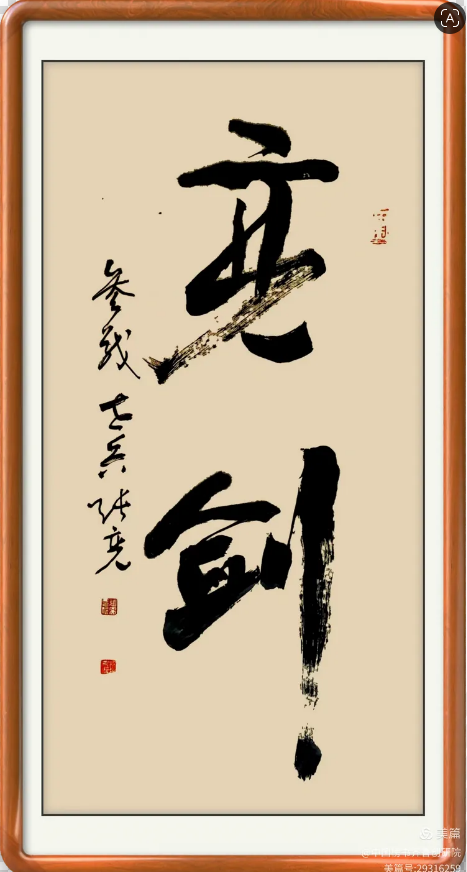 亮剑
参战老兵张亮
美篇
美篇号:29316259